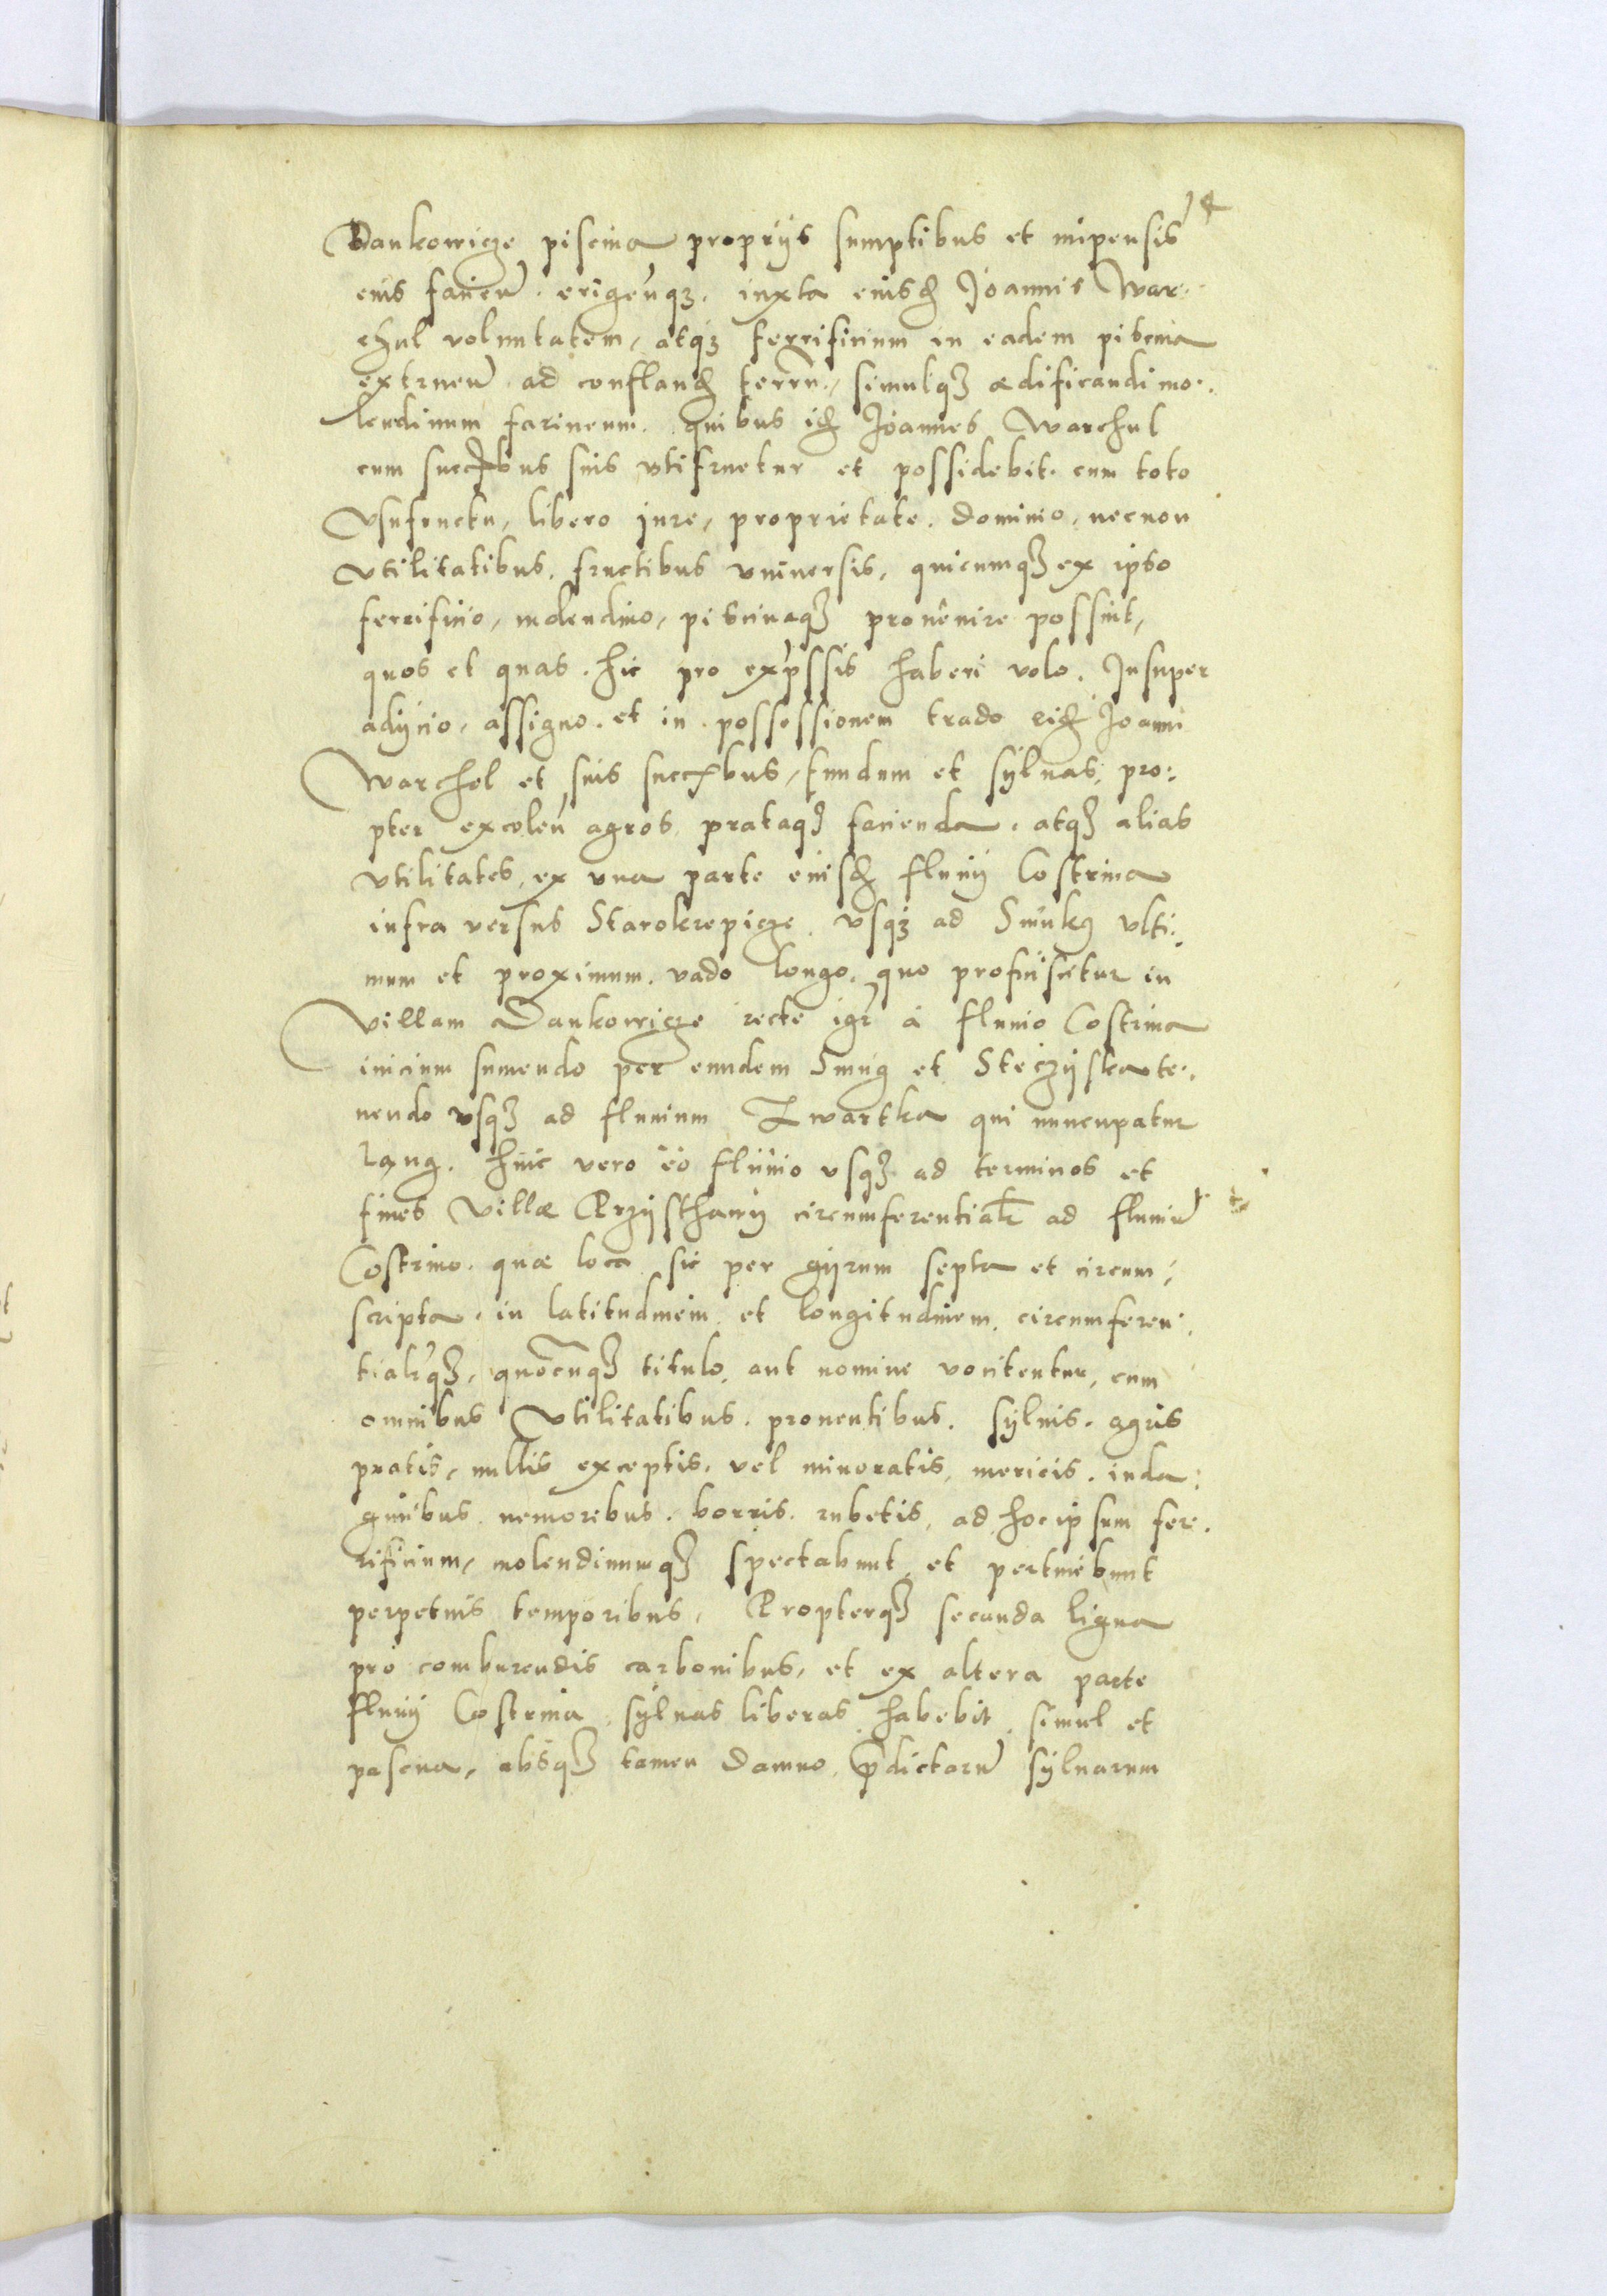 14
Dankowicze piscina proprijs sumptibus et inpensis
eius facieñ. erigeñqȝ. iuxta eiusđ Joannis War-
chul voluntatem, atqȝ ferrificium in eadem piscina
extrueñ. ad conflanđ ferrũ, simulqȝ ædificandi mo-
lendinum farineum. quibus iđ Joannes Warchul
cum succ̃bus suis vtifruetur et possidebit. cum toto
Vsufructu, libero jure, proprietate. dominio, necnon
Vtilitatibus, fructibus vniuersis, quicumqȝ ex ipso
ferrificio, molendino, piscinaqȝ prouenire possint,
quos et quas. hic pro exp̃ssis haberi volo. Insuper
adijcio, assigno. et in possessionem trado eiđ Joanni
Warchol et suis succ̃bus, fundum et syluas, pro-
pter excoleñ agros prataqȝ facienda. atqȝ alias
vtilitates, ex vna parte eiusđ fluuij Costrina
infra versus Starokrepicze. vsqȝ ad Smukg vlti-
mum et proximum. vado longo, quo proficiscitur in
Villam Dankowicze recte igr̃ à fluuio Costrina
inicium sumendo per eundem Smug et Steczyska te-
nendo vsqȝ ad fluuium Zwartka qui nuncupatur
Lang. huic vero eò fluuio vsqȝ ad terminos et
fines Villæ Przysthawy circumferentialr̃ ad fluuiũ
Costrino. quæ loca sic per gyrum septa et circum-
scripta. in latitudinem et longitudinem, circumferen-
tialr̃qȝ, quocũqȝ titulo, aut nomine vocitentur, cum
omnibus Vtilitatibus. prouentibus. syluis. agris
pratis, nullis exceptis. vel minoratis, mericis. inda-
ginibus. nemoribus. borris. rubetis, ad hoc ipsum fer-
rificium, molendinumqȝ spectabunt et pertinebunt
perpetuis temporibus, Propterqȝ secanda ligna
pro comburendis carbonibus, et ex altera parte
fluuij Costrina. syluas liberas habebit. simul et
pascua, absqȝ tamen damno, p̃dictarũ syluarum